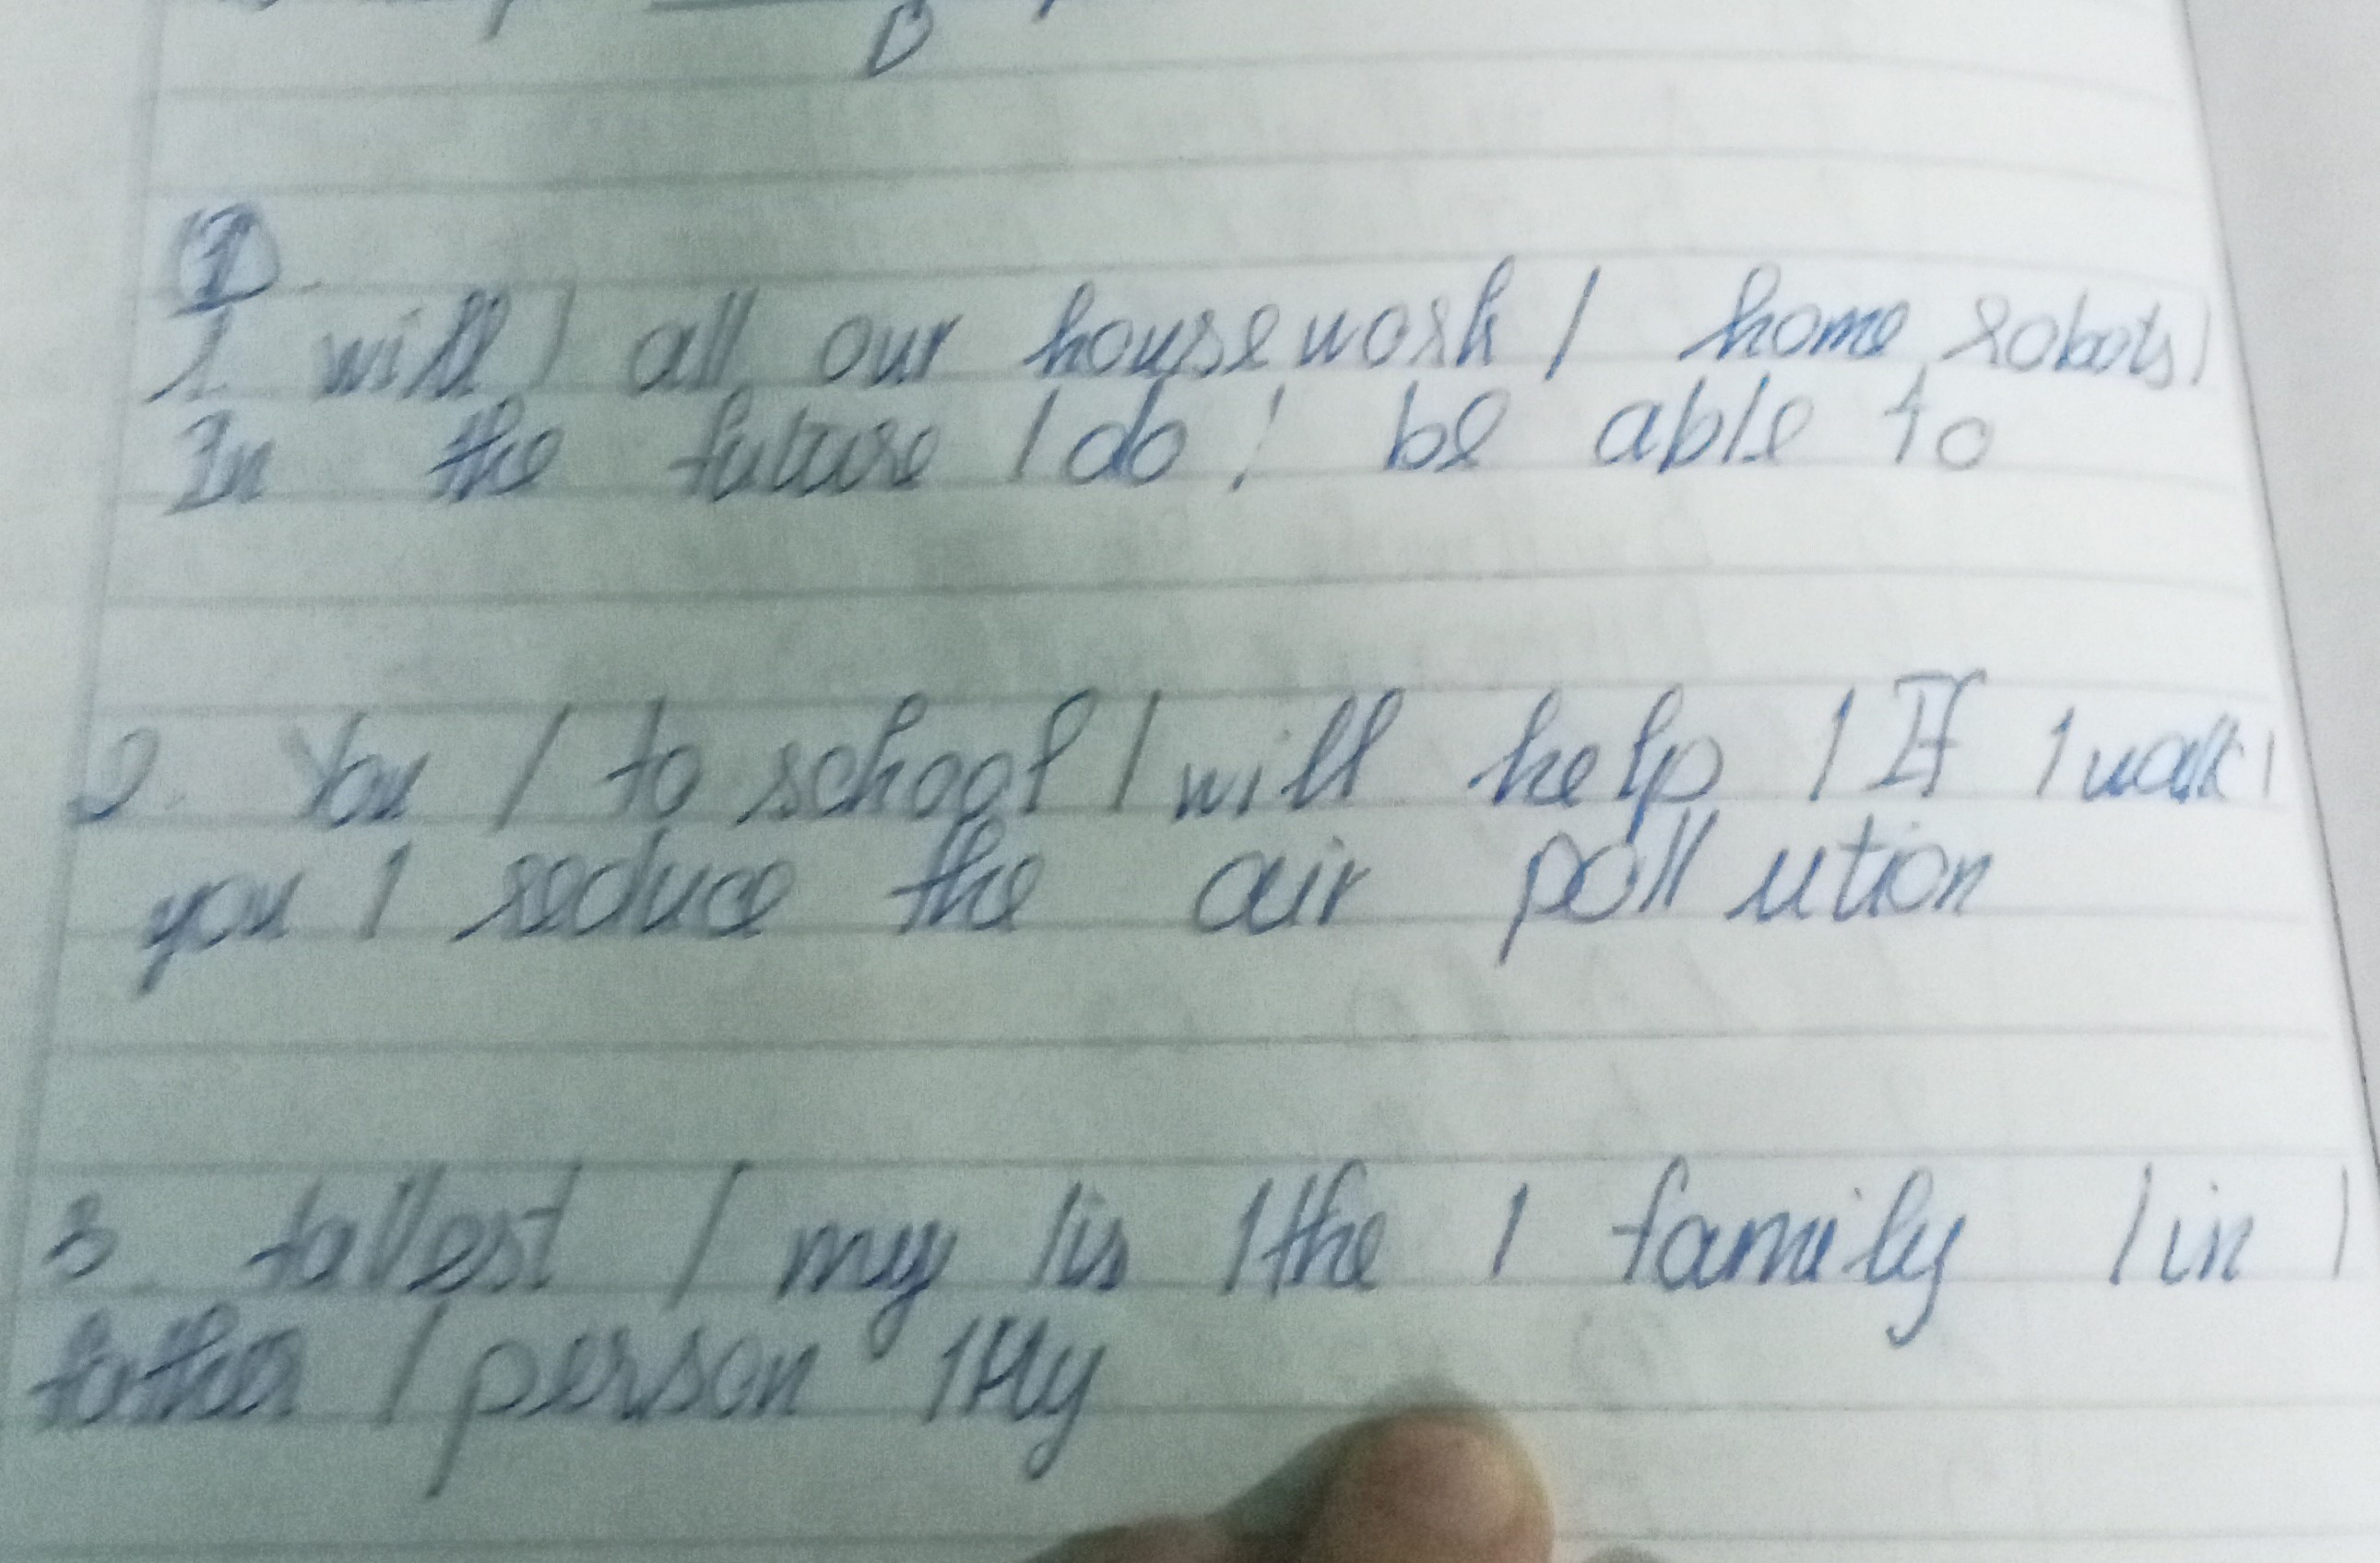 B
1
1. will / all our housework / home robots /
In the future / do / be able to
2. You / to school / will help / If / walk /
you / reduce the air pollution
3. tallest / my / is / the / family / in /
father / person / My